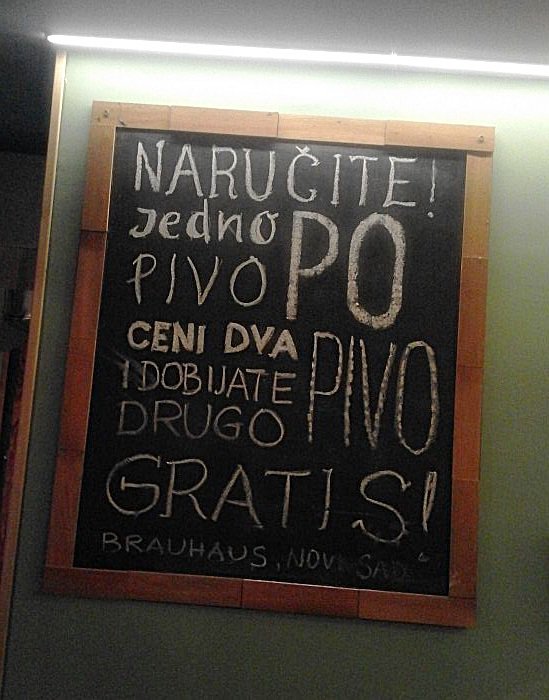 NARUČITE!
jedno PO
PIVO
CENI DVA
I DOBIJATE PIVO
DRUGO
GRATIS!
BRAUHAUS, NOVI SAD